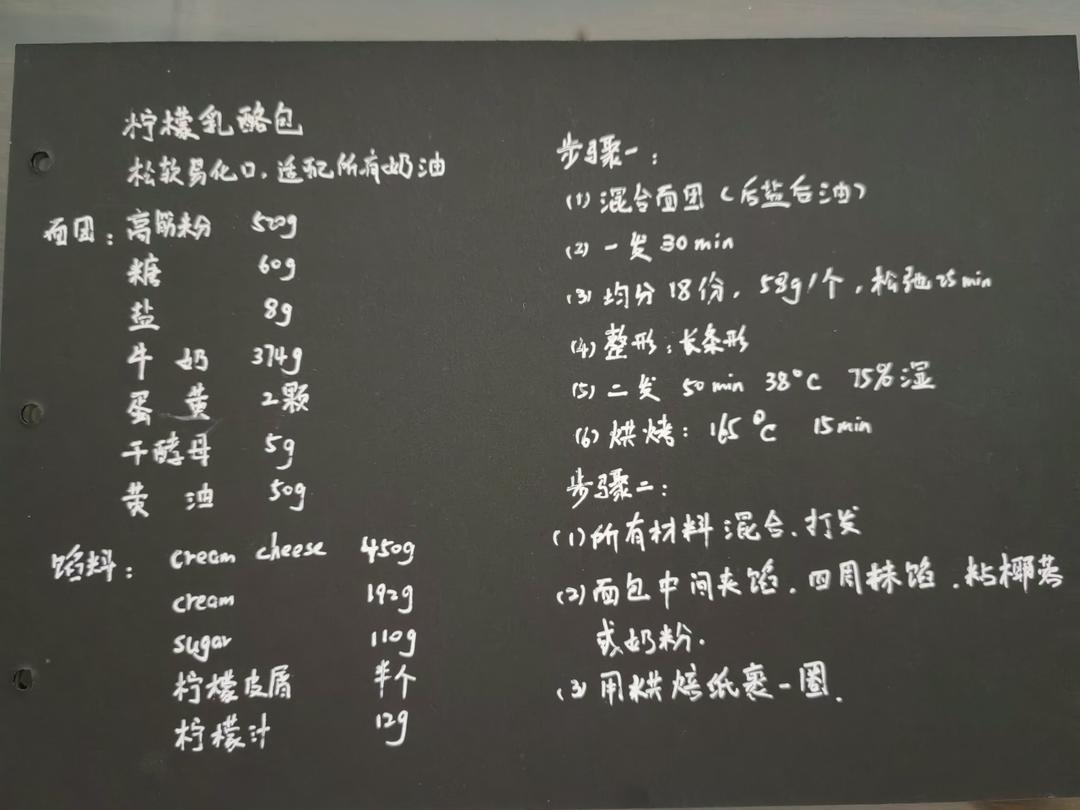 柠檬乳酪包
松软易化口，适配所有奶油
面团：高筋粉 520g
糖 60g
盐 8g
牛奶 374g
蛋黄 2颗
干酵母 5g
黄油 50g
馅料：cream cheese 450g
cream 192g
sugar 110g
柠檬皮屑 半个
柠檬汁 12g
步骤一：
(1) 混合面团（后盐后油）
(2) 一发 30min
(3) 均分18份，58g/个，松弛25min
(4) 整形：长条形
(5) 二发 50min 38°C 75%湿
(6) 烘烤：165°C 15min
步骤二：
(1) 所有材料混合、打发
(2) 面包中间夹馅、四周抹馅、粘椰蓉
或奶粉.
(3) 用烘焙纸裹一圈.